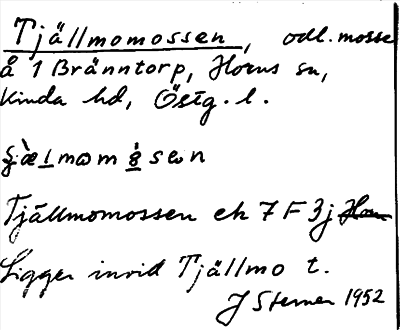 Tjällmomossen, odl. mosse
å 1 Bränntorp, Horns sn,
Kinda hd, Östg. l.
Tjällmomossen ek 7 F 3j
Ligger invid Tjällmo t.
J Sterner 1952